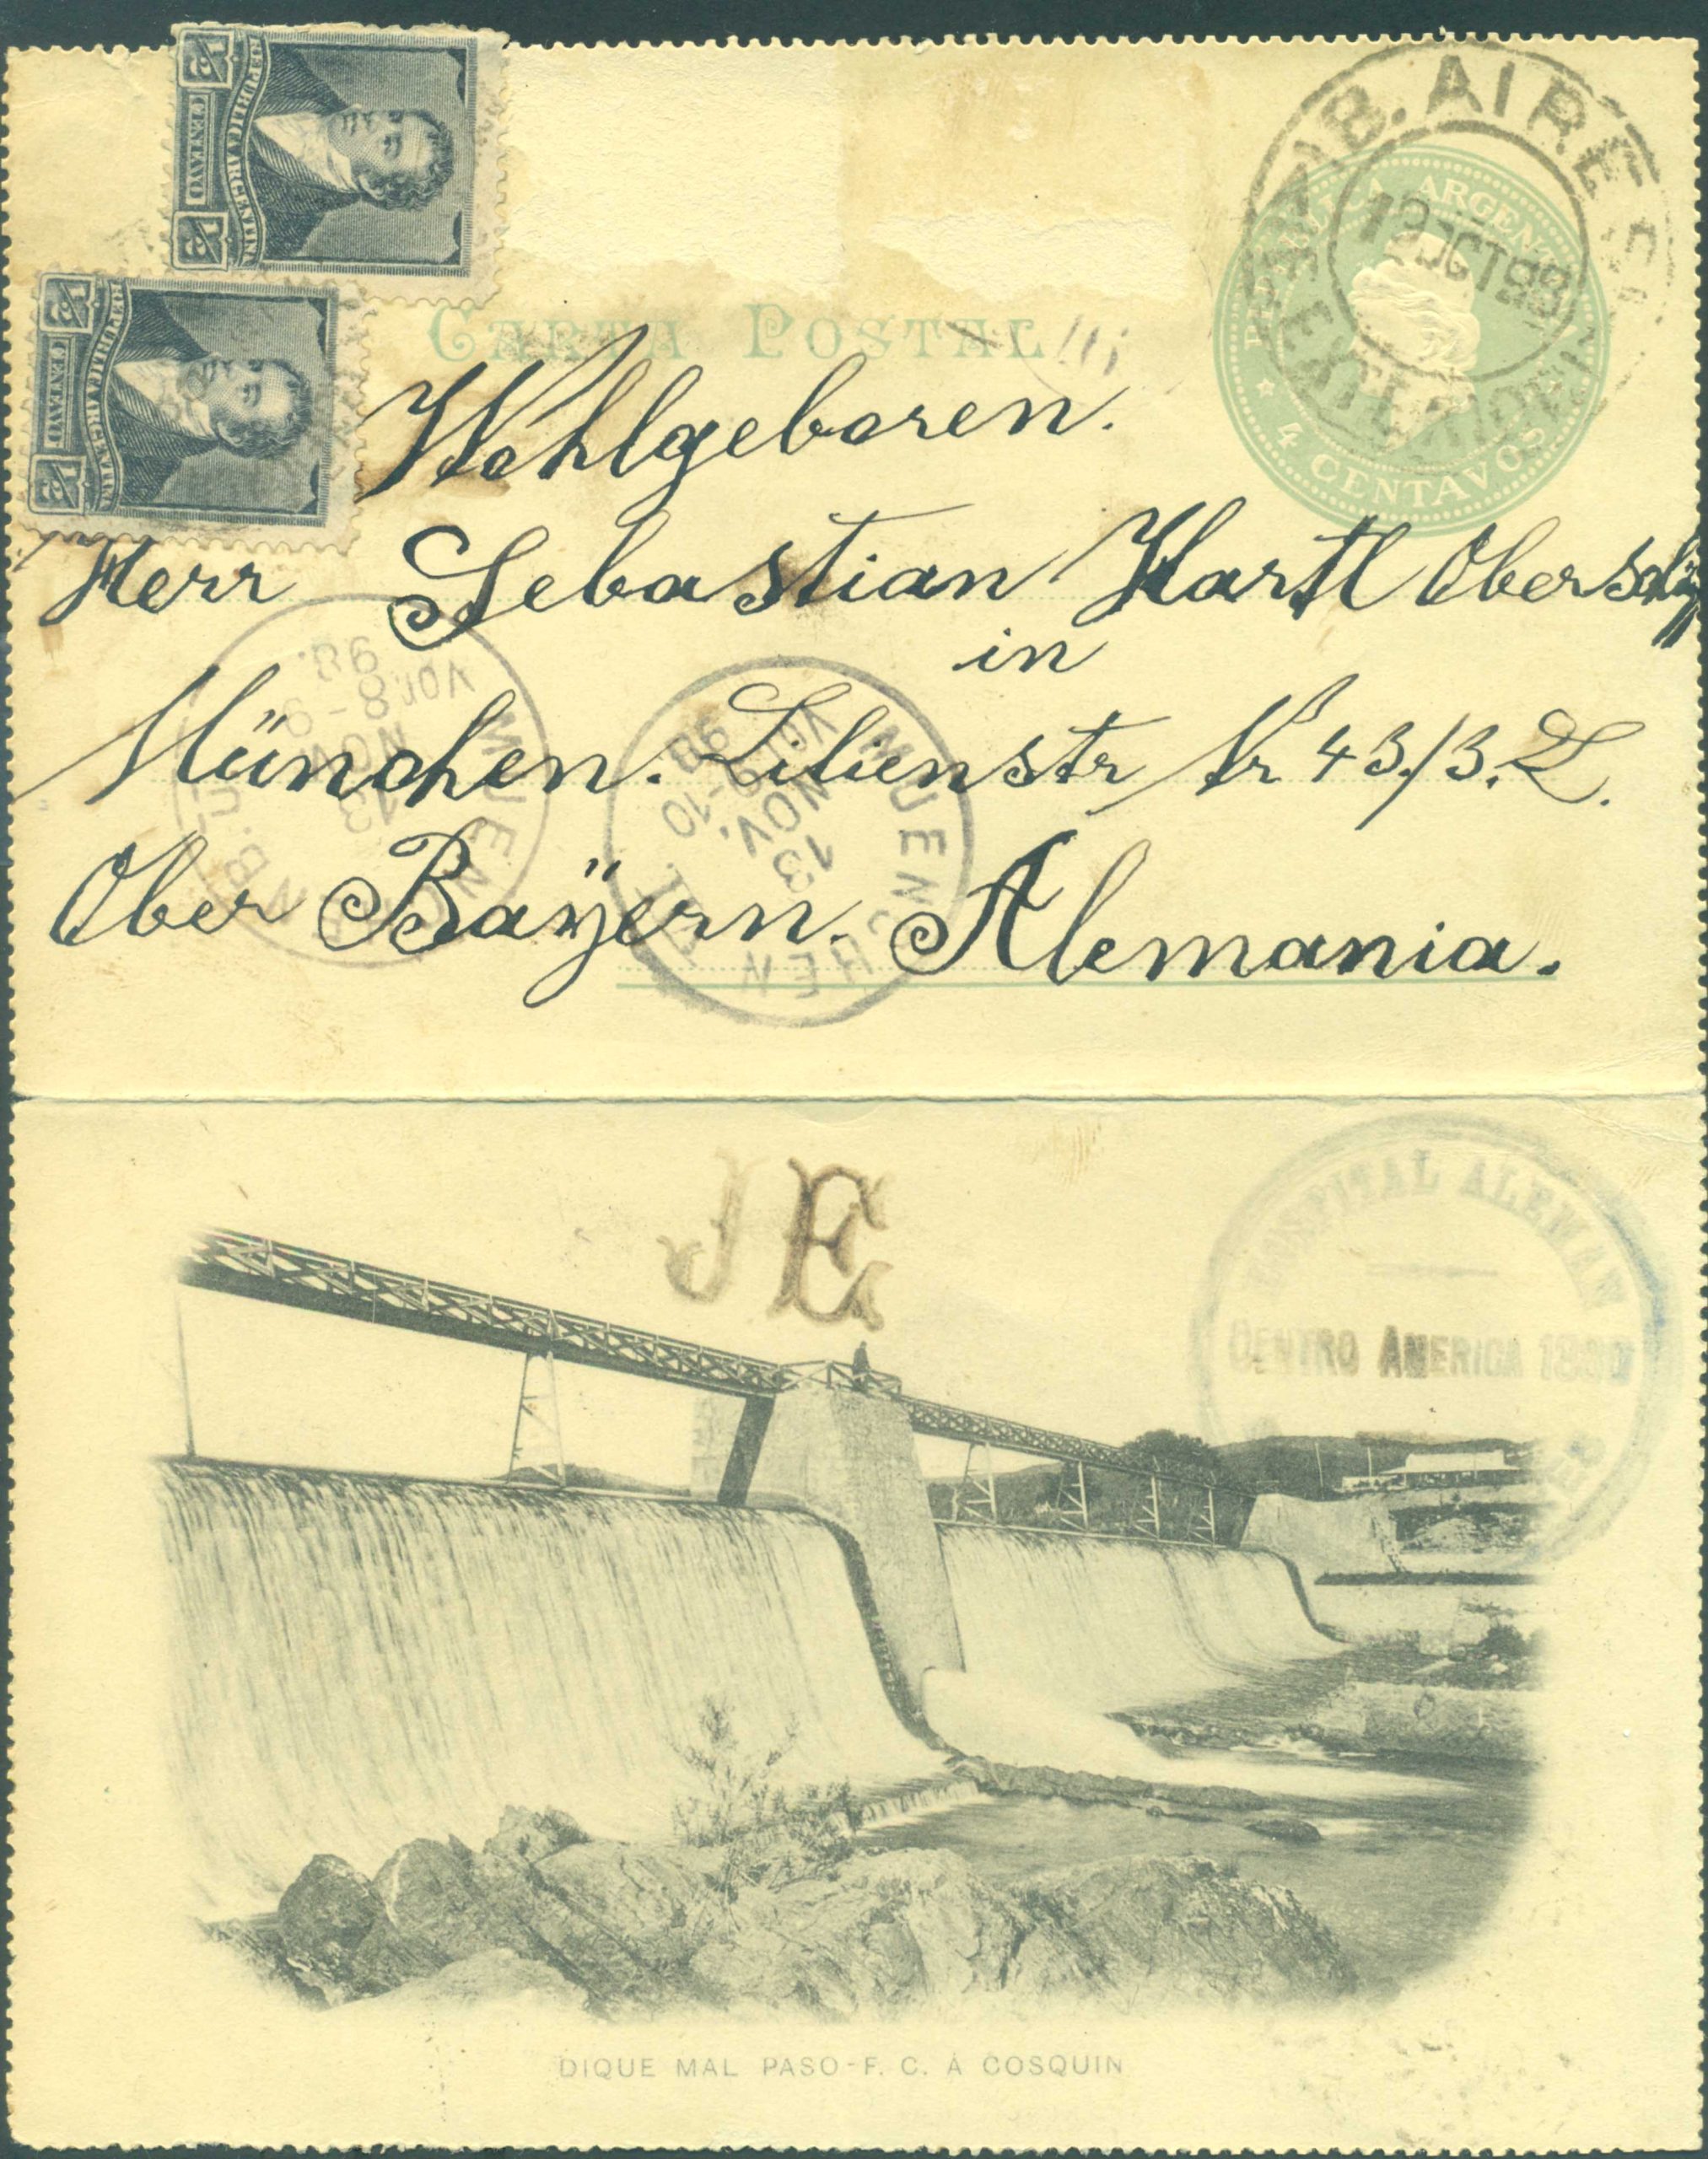 ½ ½
CENTAVO
REPUBLICA ARGENTINA
½ ½
CENTAVO
REPUBLICA ARGENTINA
CARTA POSTAL
REPUBLICA ARGENTINA
4 CENTAVOS
B. AIRES
OCT 98
Wohlgeboren.
Herr Sebastian Hartl
in
München. Lilienstr Nr 43./3. L.
Ober Bayern. Alemania.
MUENCHEN
13
NOV
8-9
Vor.
98.
MUENCHEN II
13
NOV.
9-10
Vor.
98.
JE
HOSPITAL ALEMAN
CENTRO AMERICA
DIQUE MAL PASO-F. C. Á COSQUIN